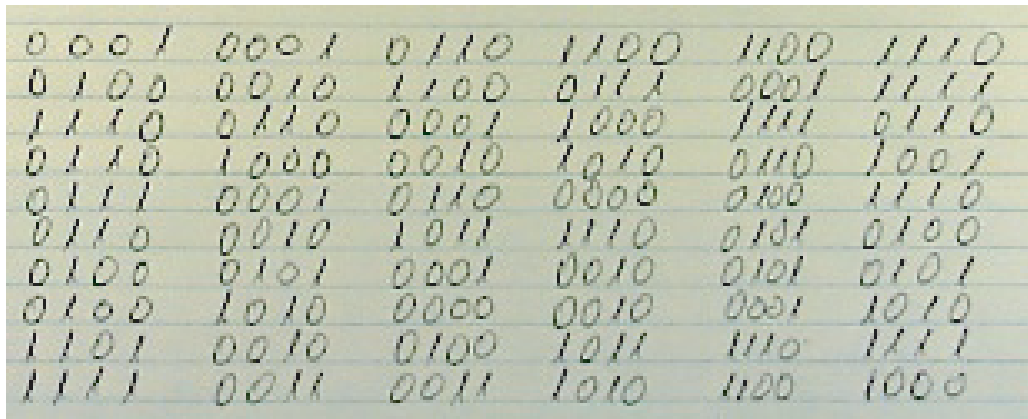 0001 0001 0110 1100 1100 1110
0100 0010 1100 0111 0001 1111
1110 0110 0001 1000 1111 0110
0110 1000 0010 1010 0110 1001
0111 0001 0110 0000 0100 1110
0110 0010 1011 1110 0101 0100
0100 0101 0001 0010 0101 0101
0100 1010 0000 0010 0001 1010
1101 0010 0100 1011 1110 1111
1111 0011 0011 1010 1100 1000